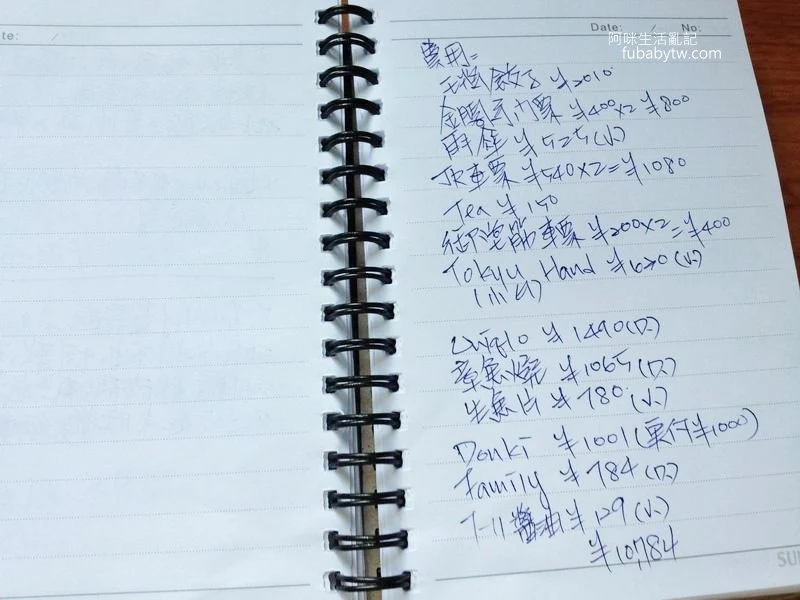 te: /
Date: / No:
阿咪生活亂記
fubabytw.com
費用=
王將餃子 ¥2010
金閣寺門票 ¥400x2 ¥800
雨傘 ¥525(V.)
JR車票 ¥540x2=¥1080
Tea ¥150
御堂筋車票 ¥200x2=¥400
Tokyu Hand ¥620(V.)
Uniqlo ¥1490(D.)
章魚燒 ¥1065(D.)
生魚片 ¥780(V.)
Donki ¥1001(實付¥1000)
Family ¥784(D.)
7-11 醬油 ¥129(V.)
¥10,784
SU